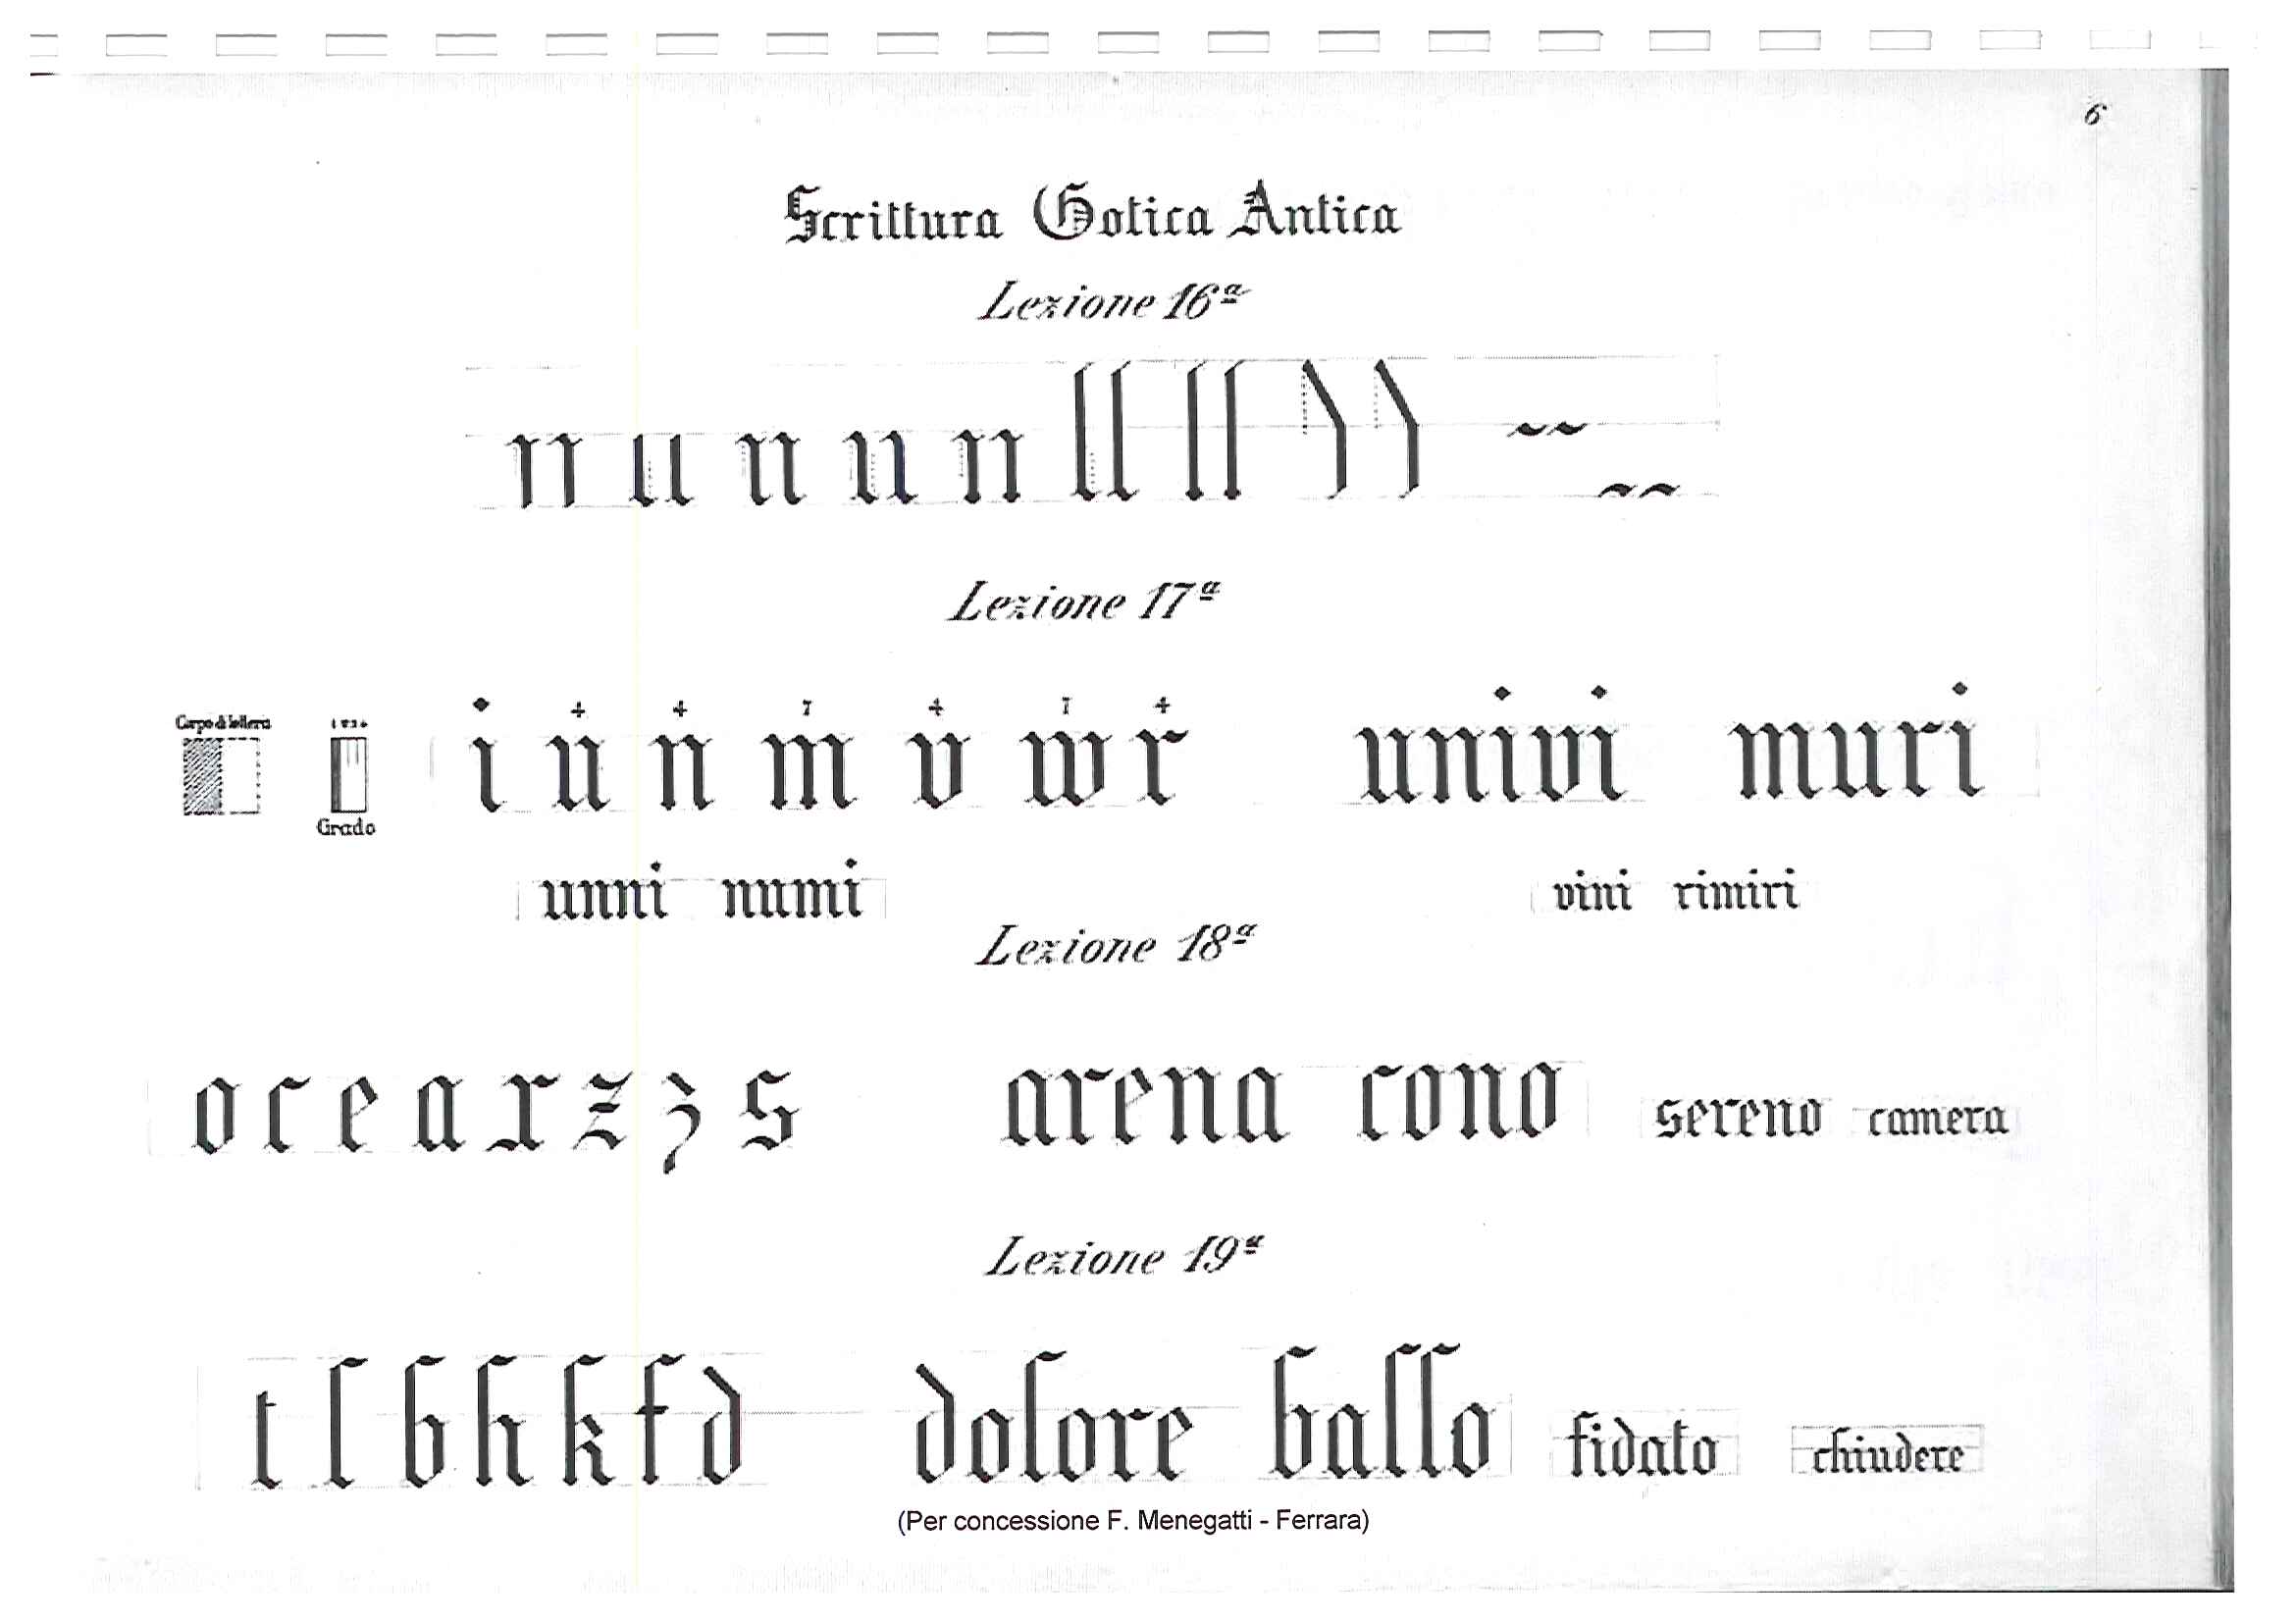 6
Scrittura Gotica Antica
Lezione 16ª
Lezione 17ª
Corpo di lettera 1 2 3 4 4 4 7 4 7 4
i u n m v w r univi muri
Grado
unni numi vini rimiri
Lezione 18ª
o c e a x z z s arena cono sereno camera
Lezione 19ª
t l b h k f d dolore ballo fidato chiudere
(Per concessione F. Menegatti - Ferrara)